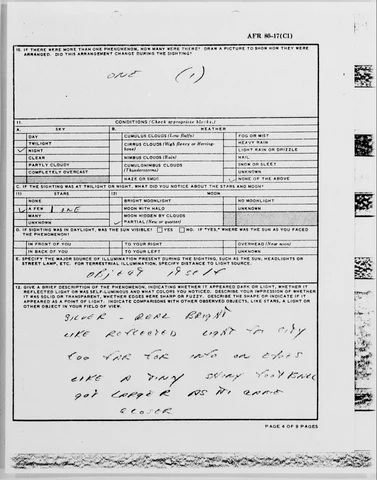 AFR 80-17(C1)
10. IF THERE WERE MORE THAN ONE PHENOMENON, HOW MANY WERE THERE? DRAW A PICTURE TO SHOW HOW THEY WERE
ARRANGED. DID THIS ARRANGEMENT CHANGE DURING THE SIGHTING?
ONE (1)
11. CONDITIONS (Check appropriate blocks.)
A. SKY B. WEATHER
DAY CUMULUS CLOUDS (Low fluffy) FOG OR MIST
TWILIGHT CIRRUS CLOUDS (High fleecy or Herring-bone) HEAVY RAIN
NIGHT LIGHT RAIN OR DRIZZLE
CLEAR NIMBUS CLOUDS (Rain) HAIL
PARTLY CLOUDY CUMULONIMBUS CLOUDS (Thunderstorms) SNOW OR SLEET
COMPLETELY OVERCAST UNKNOWN
HAZE OR SMOG NONE OF THE ABOVE
C. IF THE SIGHTING WAS AT TWILIGHT OR NIGHT, WHAT DID YOU NOTICE ABOUT THE STARS AND MOON?
(1) STARS (2) MOON
NONE BRIGHT MOONLIGHT NO MOONLIGHT
A FEW MOON WITH HALO UNKNOWN
MANY MOON HIDDEN BY CLOUDS
UNKNOWN PARTIAL (New or quarter)
D. IF SIGHTING WAS IN DAYLIGHT, WAS THE SUN VISIBLE? YES NO. IF "YES," WHERE WAS THE SUN AS YOU FACED
THE PHENOMENON?
IN FRONT OF YOU TO YOUR RIGHT OVERHEAD (Near noon)
IN BACK OF YOU TO YOUR LEFT UNKNOWN
E. SPECIFY THE MAJOR SOURCE OF ILLUMINATION PRESENT DURING THE SIGHTING, SUCH AS THE SUN, HEADLIGHTS OR
STREET LAMP, ETC. FOR TERRESTRIAL ILLUMINATION, SPECIFY DISTANCE TO LIGHT SOURCE.
12. GIVE A BRIEF DESCRIPTION OF THE PHENOMENON, INDICATING WHETHER IT APPEARED DARK OR LIGHT, WHETHER IT
REFLECTED LIGHT OR WAS SELF-LUMINOUS AND WHAT COLORS YOU NOTICED. DESCRIBE YOUR IMPRESSION OF WHETHER
IT WAS SOLID OR TRANSPARENT, WHETHER EDGES WERE SHARP OR FUZZY. DESCRIBE THE SHAPE OR INDICATE IF IT
APPEARED AS A POINT OF LIGHT. INDICATE COMPARISONS WITH OTHER OBSERVED OBJECTS, LIKE STARS, A LIGHT OR
OTHER OBJECT IN YOUR FIELD OF VIEW.
SILVER - REAL BRIGHT
LIKE REFLECTED LIGHT
TOO FAR FOR INFO ON EDGES
LIKE A TINY SHINY FOOTBALL
GOT LARGER AS IT CAME
CLOSER
PAGE 4 OF 9 PAGES